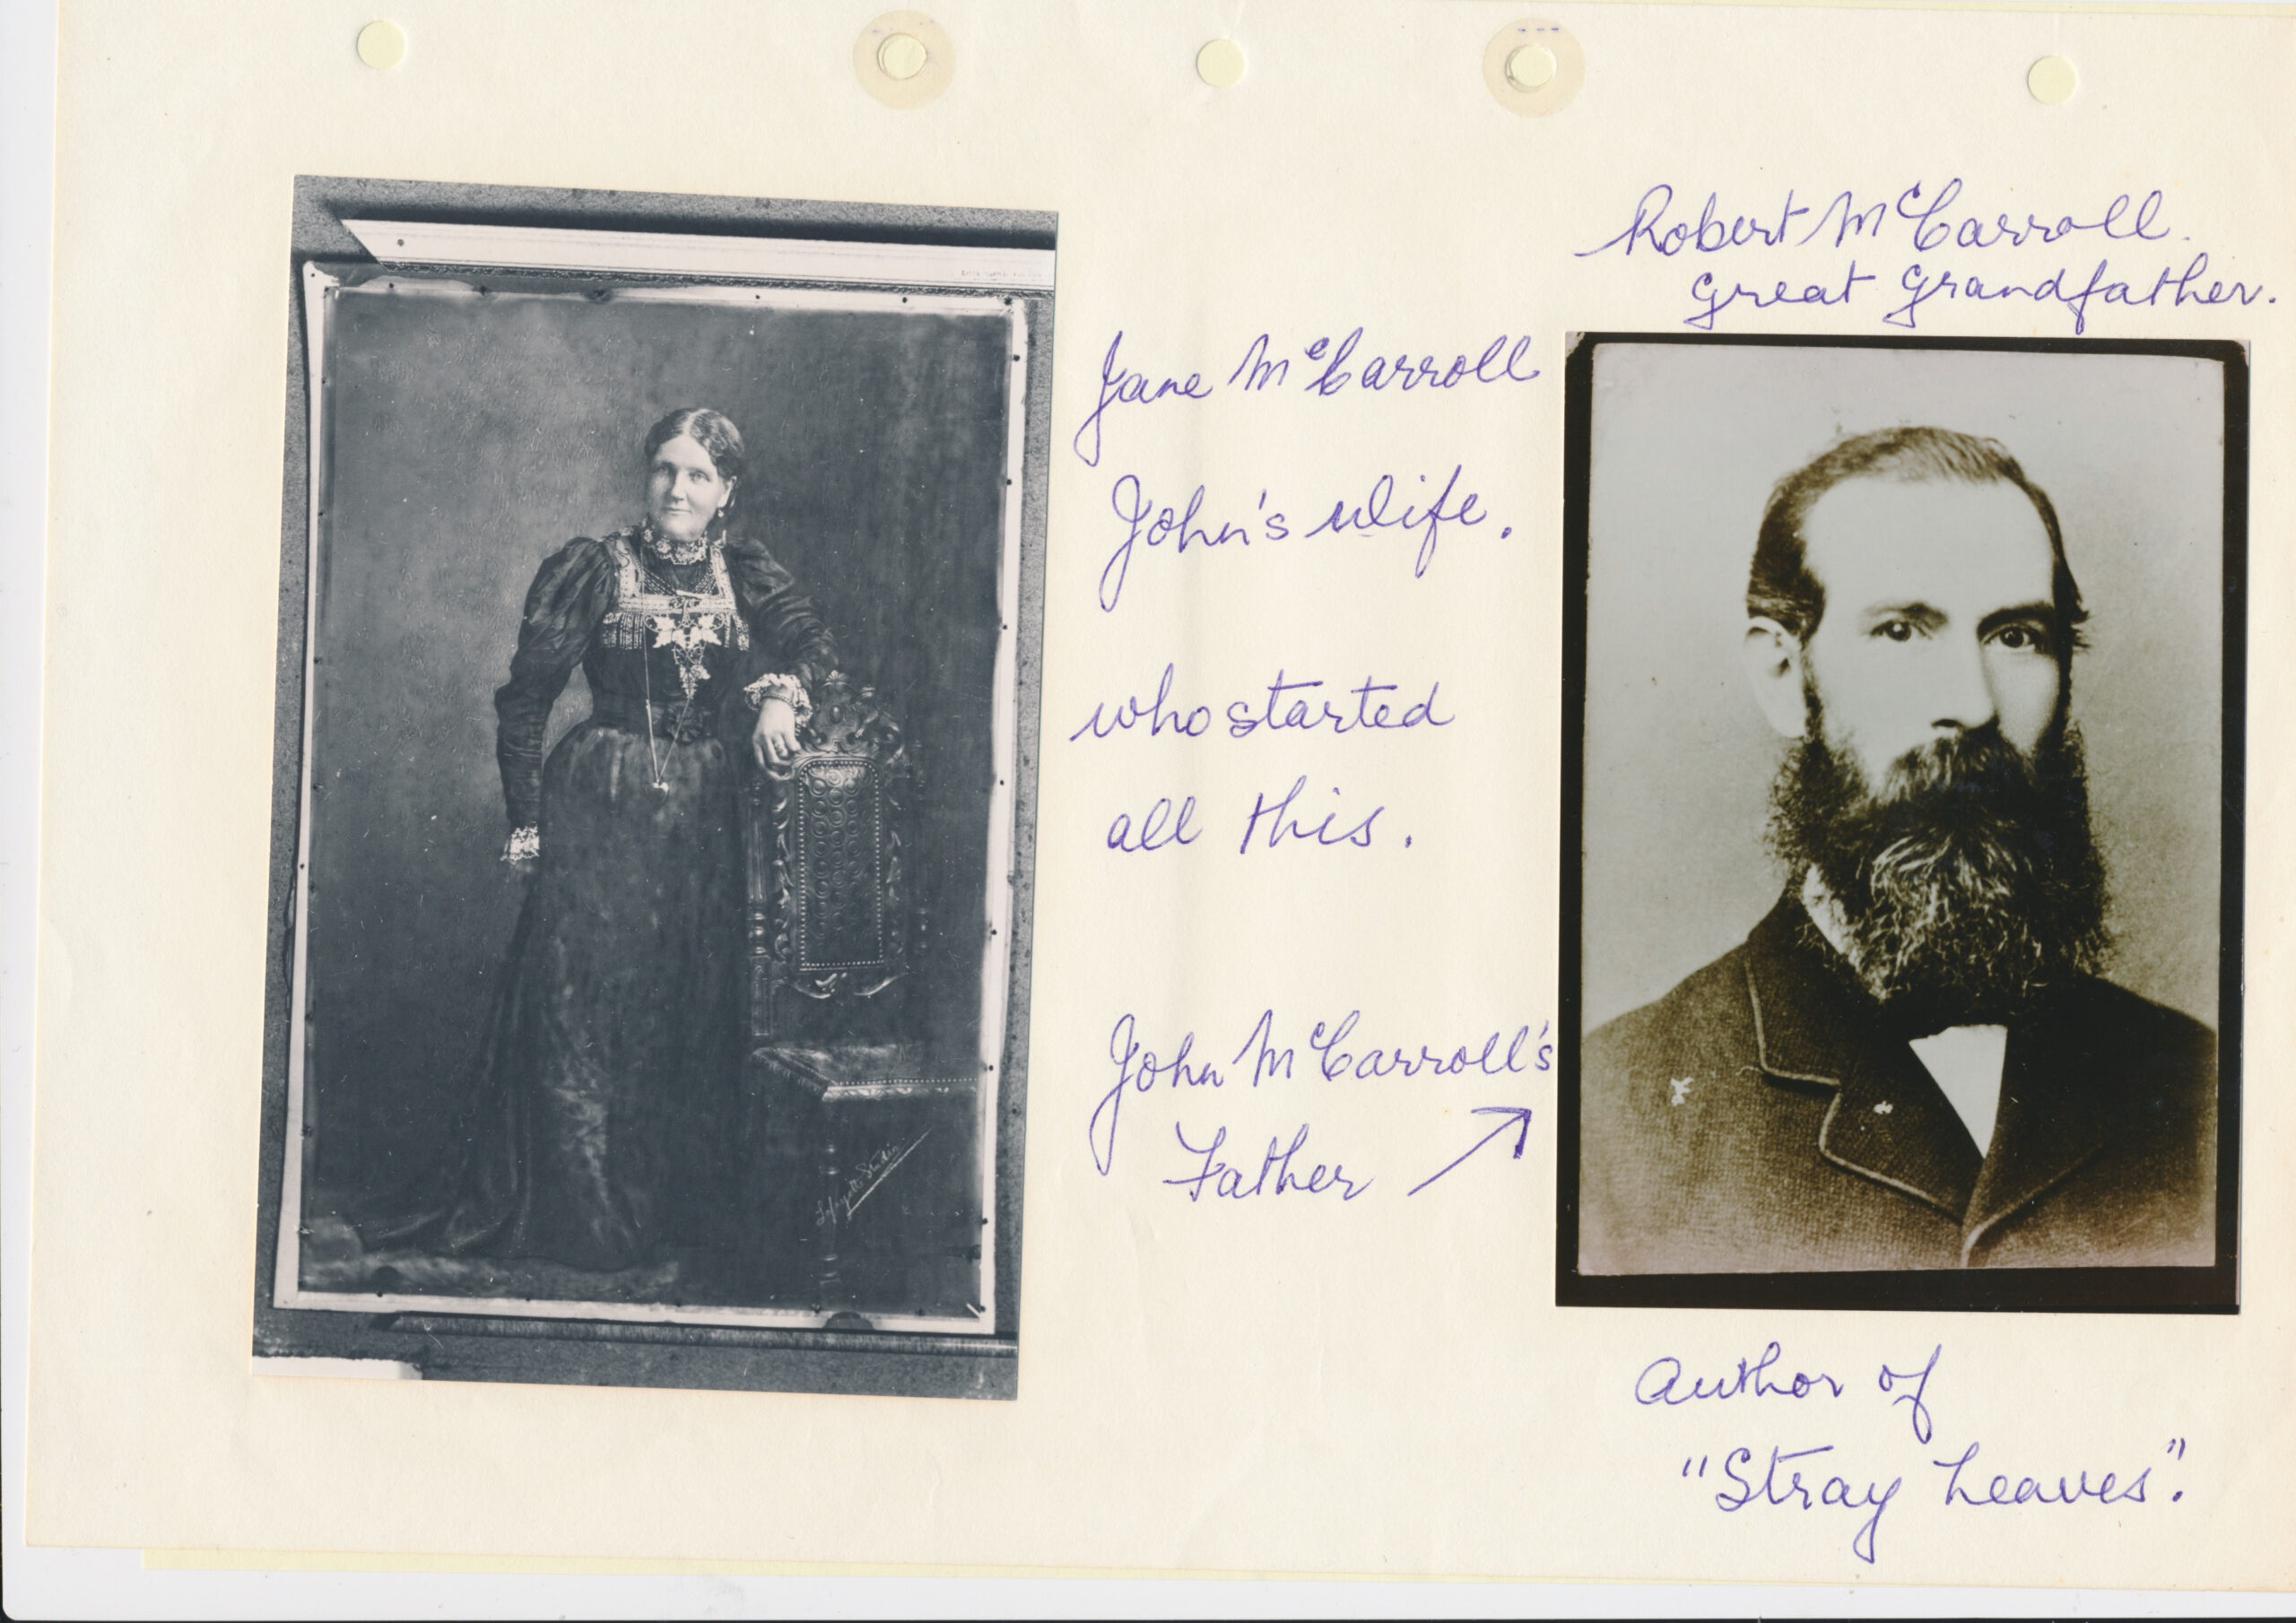 Robert McCarroll.
Great Grandfather.
Jane McCarroll
John's Wife.
who started
all this.
John McCarroll's
Father
Lafayette Studio
Author of
"Stray Leaves".